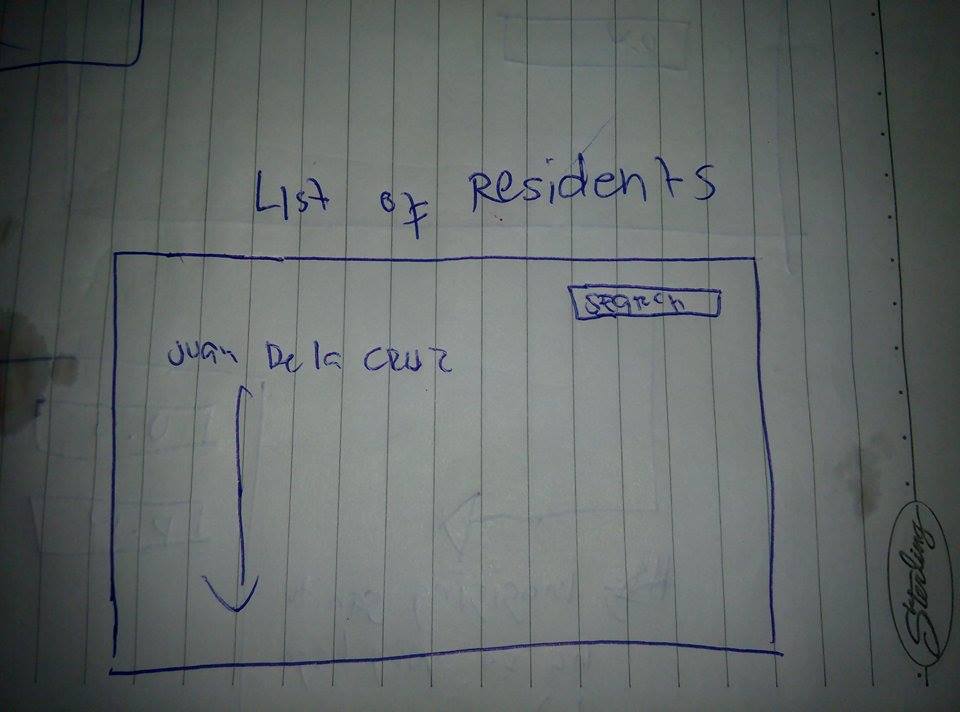 List of Residents
Search
Juan De la Cruz
Sterling